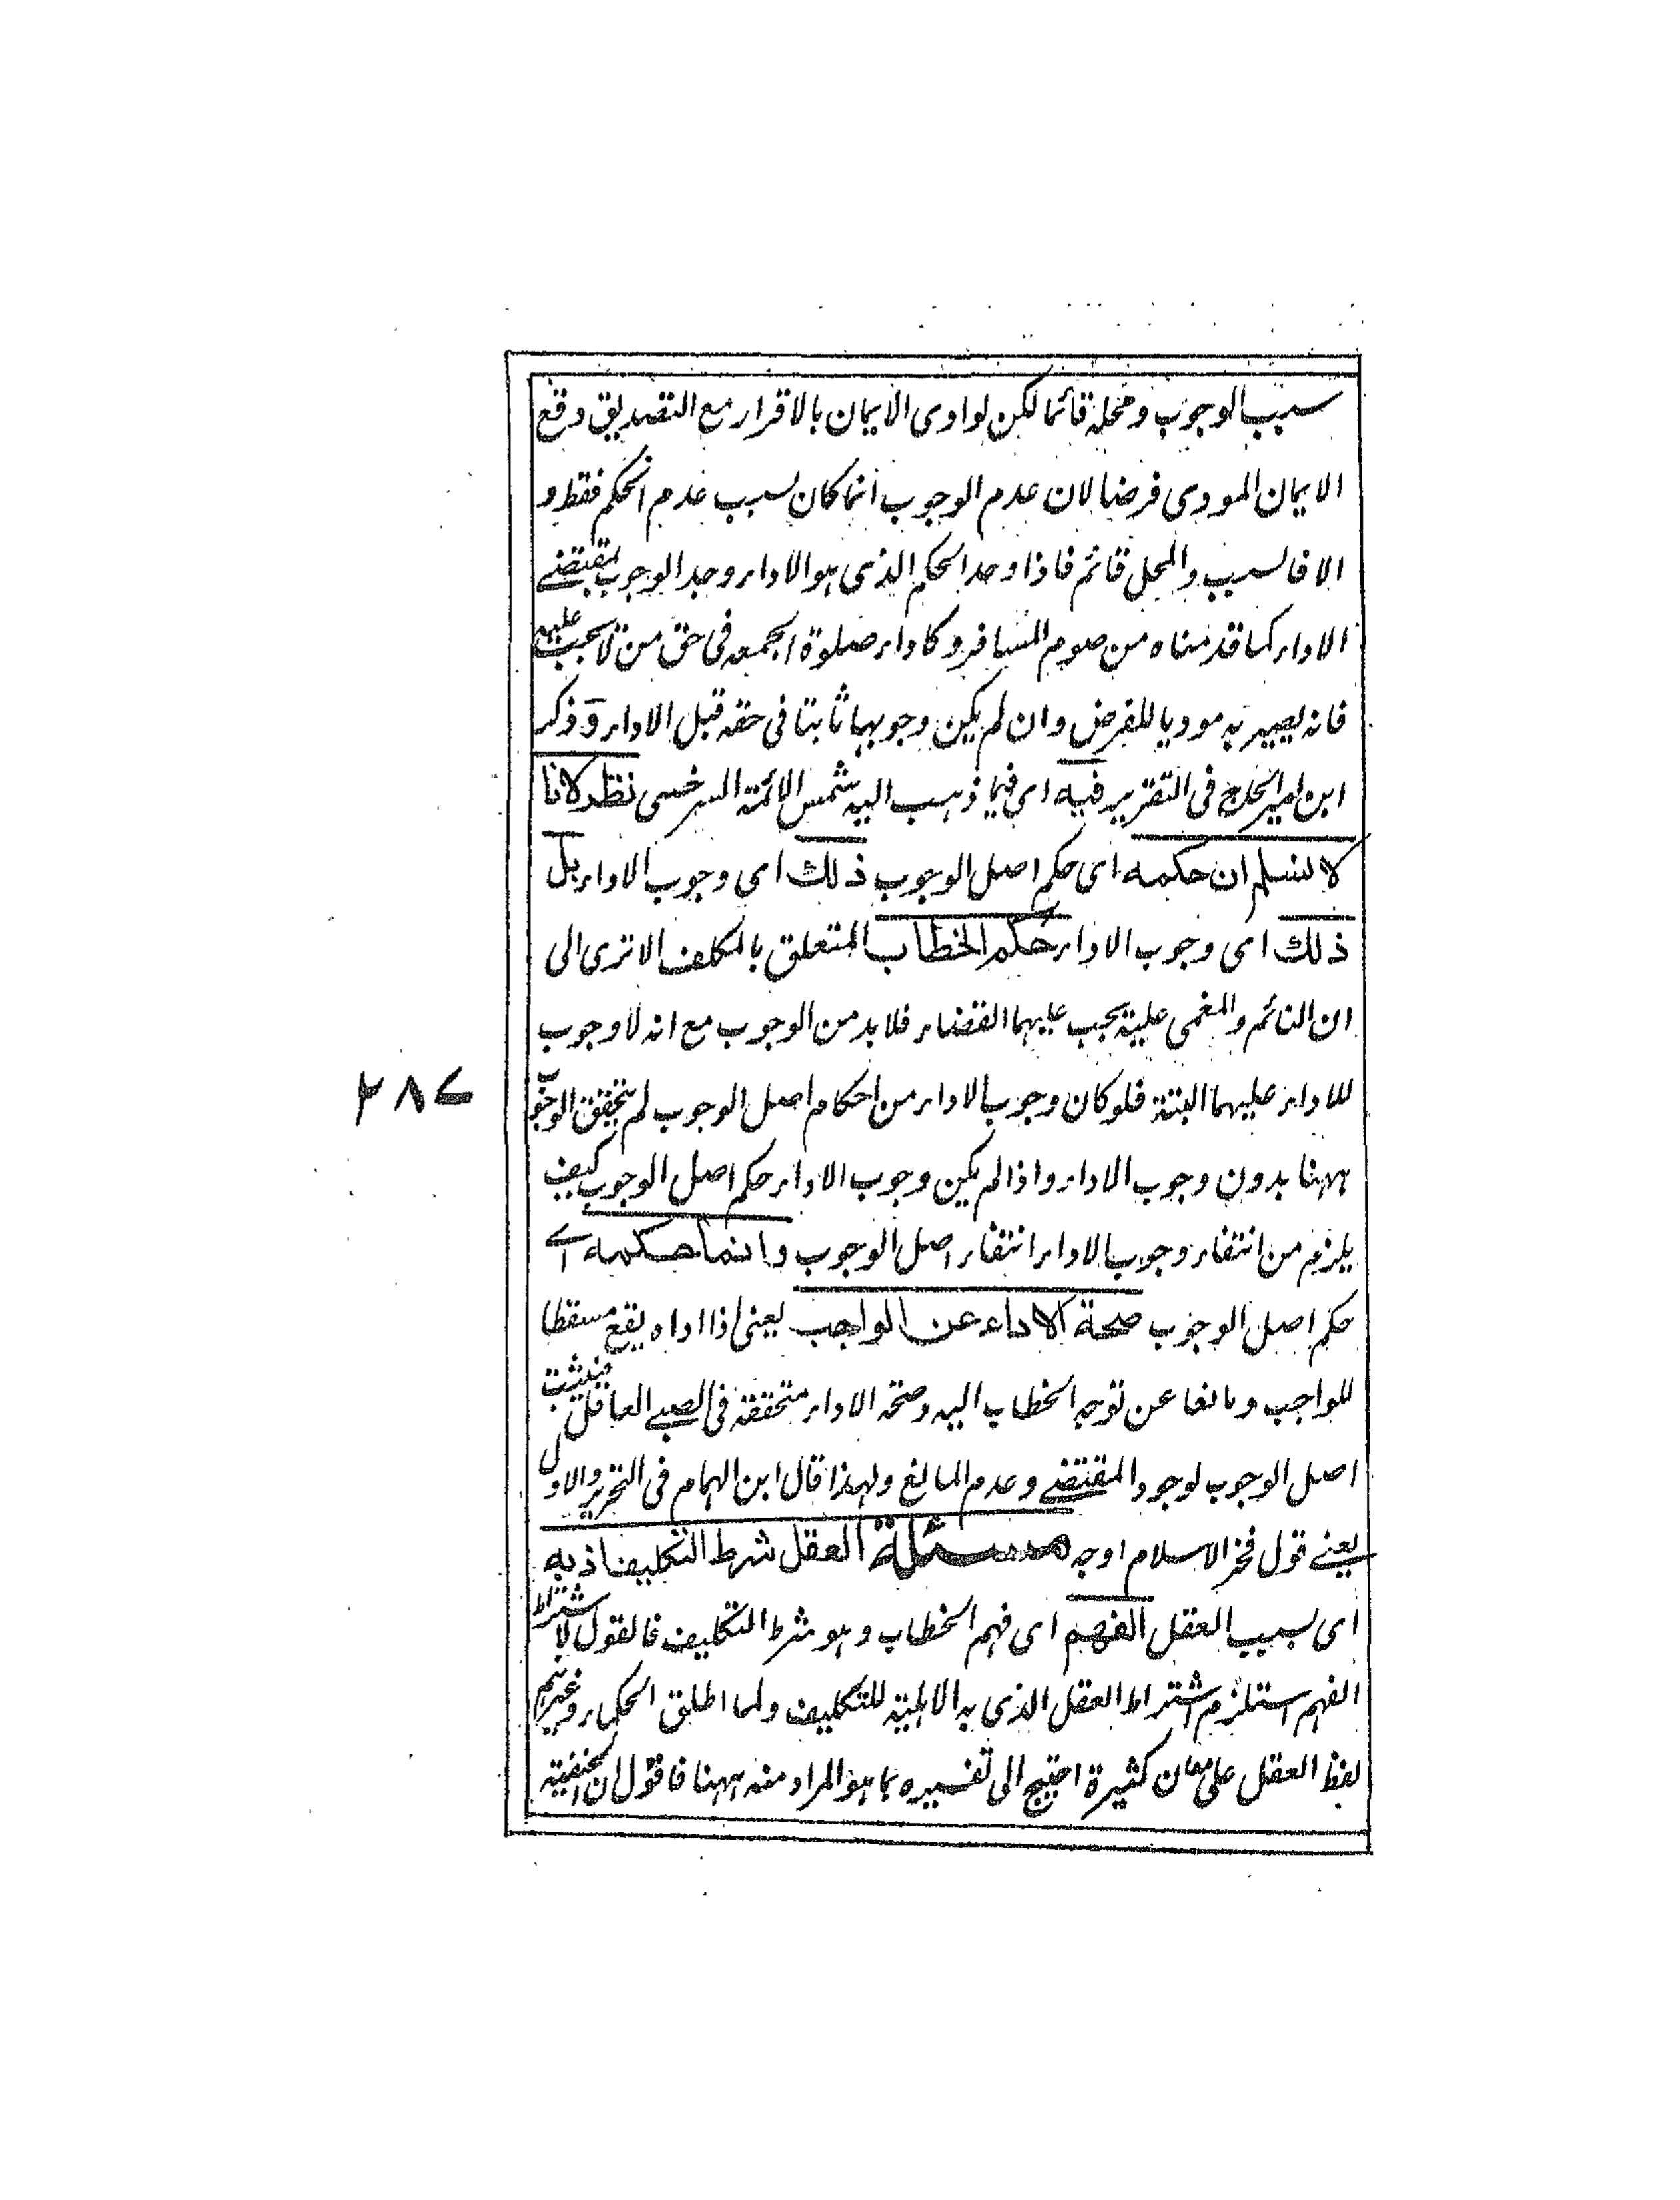 سبب الوجوب ومحله قائما لكن لو ادى الايمان بالاقرار مع التصديق وقع
الايمان المودى فرضا لان عدم الوجوب انما كان لسبب عدم الحكم فقط و
الا فالسبب والمحل قائم فاذا وجد الحكم الذى هو الاداء وجد الوجوب بمقتضى
الاداء كما قدمناه من صوم المسافر وكاداء صلوة الجمعه فى حق من لا يجب عليه
فانه يصير به موديا للفرض وان لم يكن وجوبها ثابتا فى حقه قبل الاداء وذكر
ابن امير الحاج فى التقرير فيه اى فيما ذهب اليه شمس الائمة السرخسى نظر لانا
لا نسلم ان حكمه اى حكم اصل الوجوب ذلك اى وجوب الاداء بل
ذلك اى وجوب الاداء حكم الخطاب المتعلق بالمكلف الا ترى الى
ان النائم والمغمى عليه يجب عليهما القضاء فلا بد من الوجوب مع انه لا وجوب
للاداء عليهما البتة فلو كان وجوب الاداء من احكام اصل الوجوب لم يتحقق الوجوب
٢٨٧
ههنا بدون وجوب الاداء واذا لم يكن وجوب الاداء حكم اصل الوجوب كيف
يلزم من انتفاء وجوب الاداء انتفاء اصل الوجوب وانما حكمه اے
حكم اصل الوجوب صحة الاداء عن الواجب يعنى اذا اداه يقع مسقطا
للواجب ومانعا عن توجه الخطاب اليه وصحة الاداء متحققة فى الصبے العاقل فيثبت
اصل الوجوب لوجود المقتضے وعدم المانع ولهذا قال ابن الهمام فى التحرير والاول
يعنے قول فخر الاسلام اوجه مسئلة العقل شرط التكليف اذ به
اى بسبب العقل الفهم اى فهم الخطاب وهو شرط التكليف فالقول لاشتراط
الفهم استلزم اشتراط العقل الذى به الاهلية للتكليف ولما اطلق الحكماء وغيرهم
لفظ العقل على معان كثيرة احتيج الى تفسيره بما هو المراد منه ههنا فاقول ان الحنفية